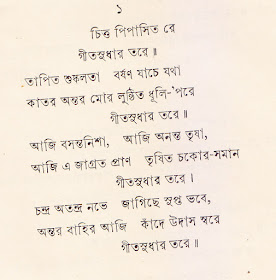 ১
চিত্ত পিপাসিত রে
গীতসুধার তরে॥
তাপিত শুষ্কলতা বর্ষণ যাচে যথা
কাতর অন্তর মোর লুণ্ঠিত ধূলি-'পরে
গীতসুধার তরে॥
আজি বসন্তনিশা, আজি অনন্ত তৃষা,
আজি এ জাগ্রত প্রাণ তৃষিত চকোর-সমান
গীতসুধার তরে।
চন্দ্র অতন্দ্র নভে জাগিছে সুপ্ত ভবে,
অন্তর বাহির আজি কাঁদে উদাস স্বরে
গীতসুধার তরে॥